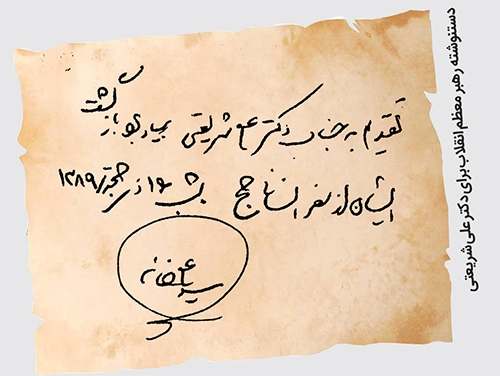 تقدیم به جناب دکتر علی شریعتی بیادبود بازگشت
ایشان از سفر انسانساز حج شب ۱۶ ذیحجة ۱۳۸۹
سید علی خامنه
دستنوشته رهبر معظم انقلاب برای دکتر علی شریعتی